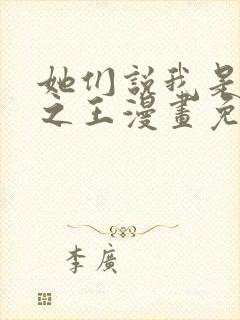 她们説我是
之王漫畫免
李廣